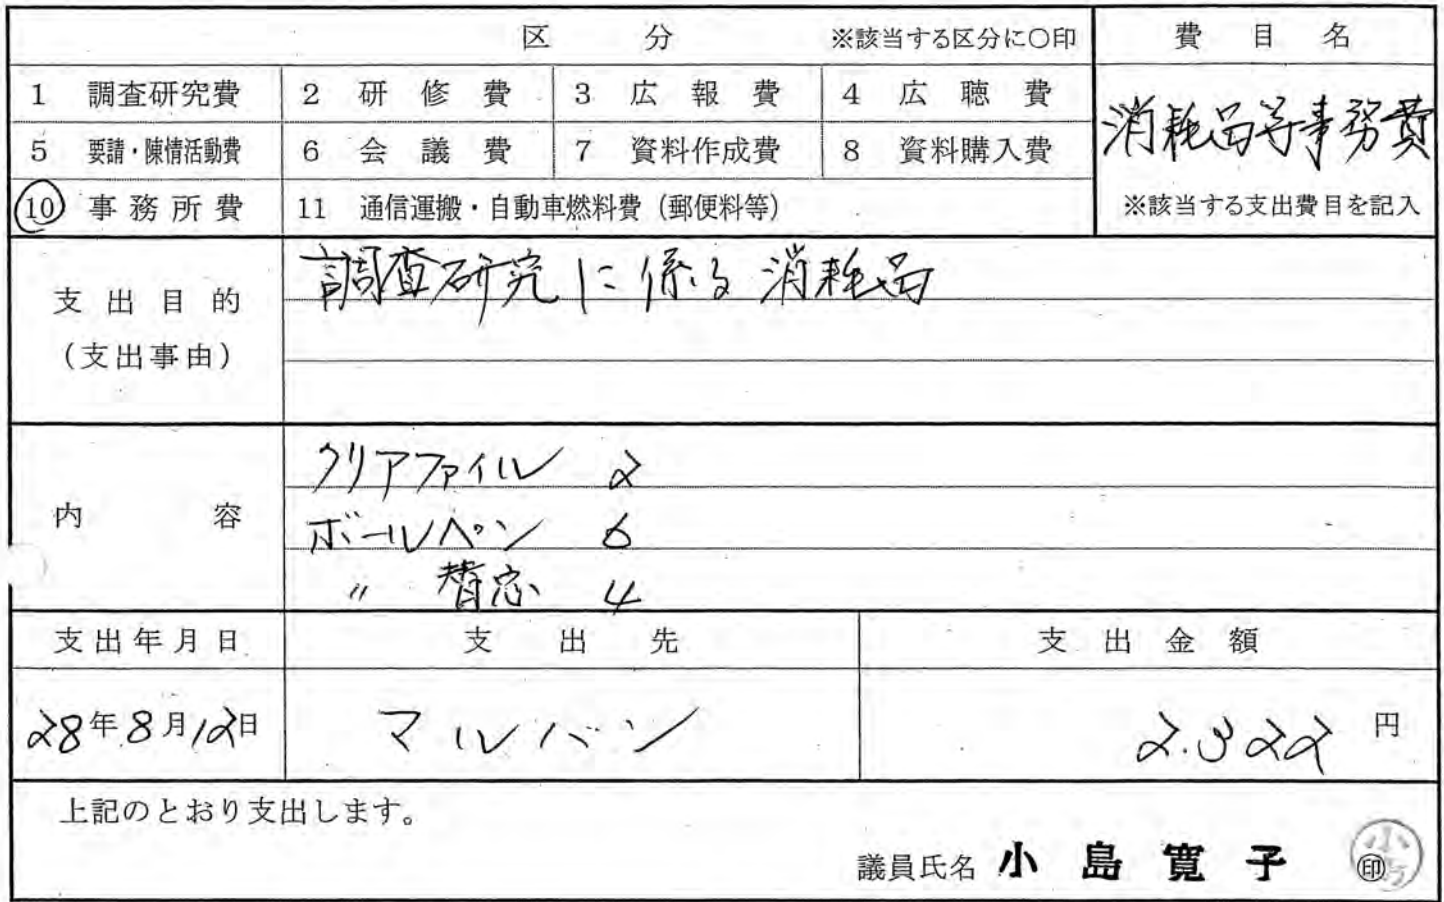 区 分 ※該当する区分に○印 費目名
1 調査研究費 2 研修費 3 広報費 4 広聴費
消耗品等事務費
5 要請・陳情活動費 6 会議費 7 資料作成費 8 資料購入費
10 事務所費 11 通信運搬・自動車燃料費（郵便料等） ※該当する支出費目を記入
調査研究に係る消耗品
支出目的
（支出事由）
クリアファイル 2
内容
ボールペン 6
〃 替芯 4
支出年月日 支出先 支出金額
28年8月12日 マルバン 2.322円
上記のとおり支出します。
議員氏名 小島寛子 印
小島